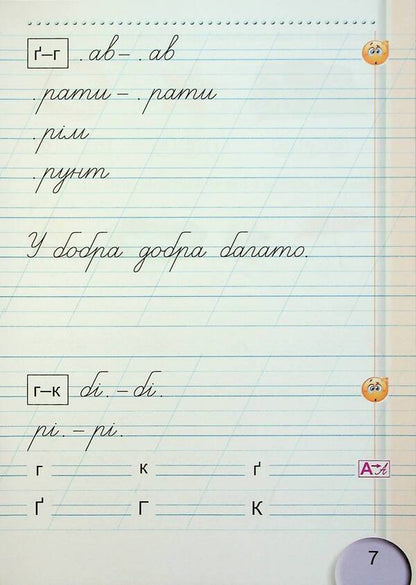 ґ–г .ав – .ав
.рати – .рати
.рім
.рунт
У бобра добра багато.
г–к бі. – бі.
рі. – рі.
г к ґ
А→А
Ґ Г К
7